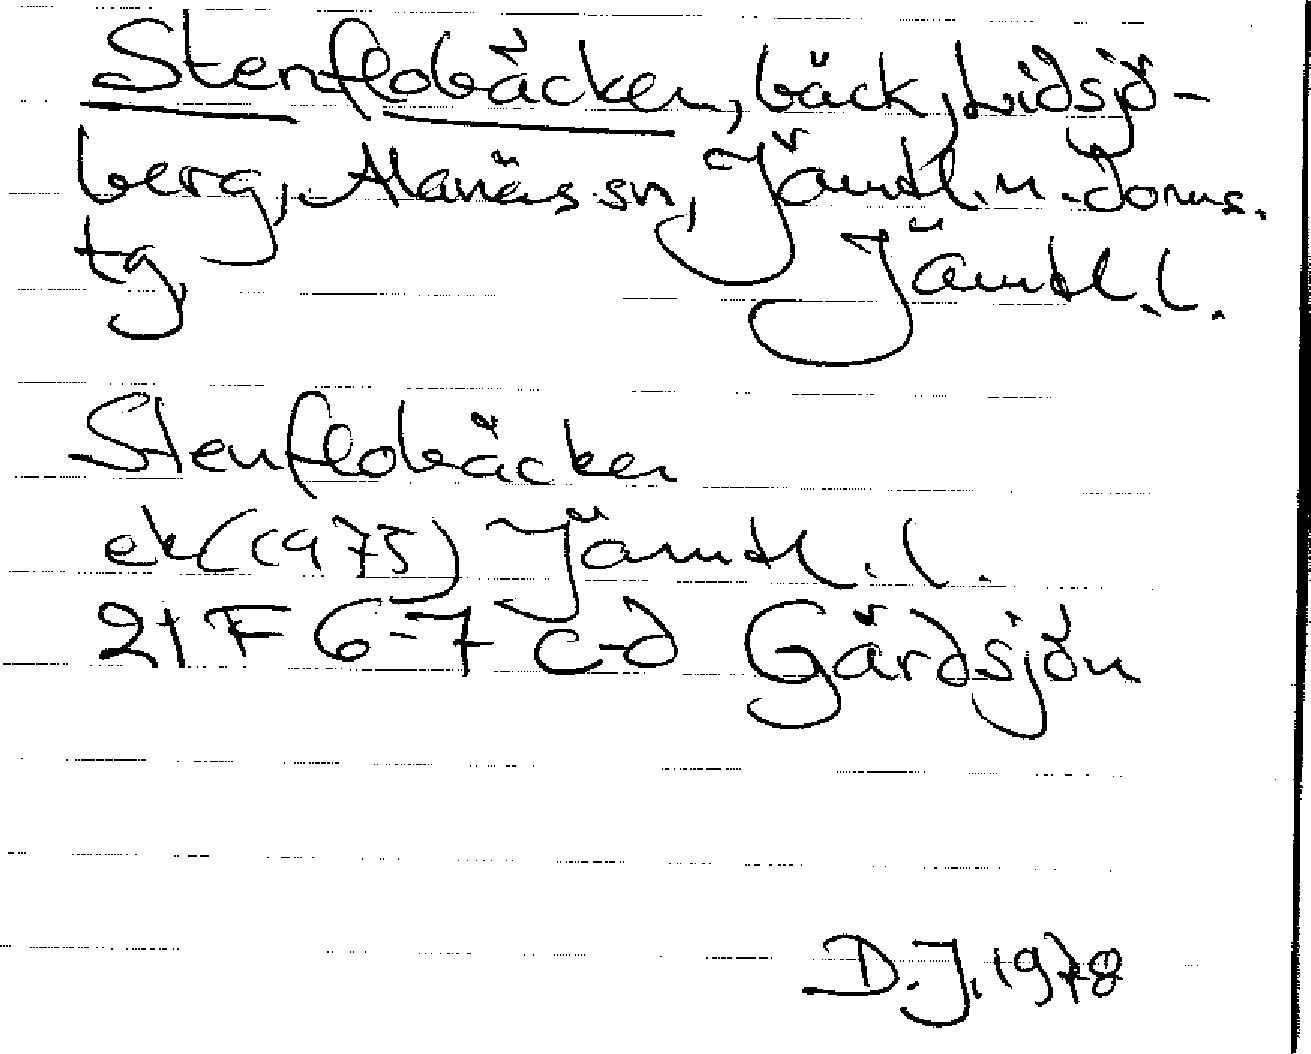 Stenflobäcken, bäck, Lidsjö-
berg, Alanäs sn, Jämtl. n. doms.
tg, Jämtl. l.
Stenflobäcken
ek (1975) Jämtl. l.
21 F 6-7 c-d Gärdsjön
D. J. 1978